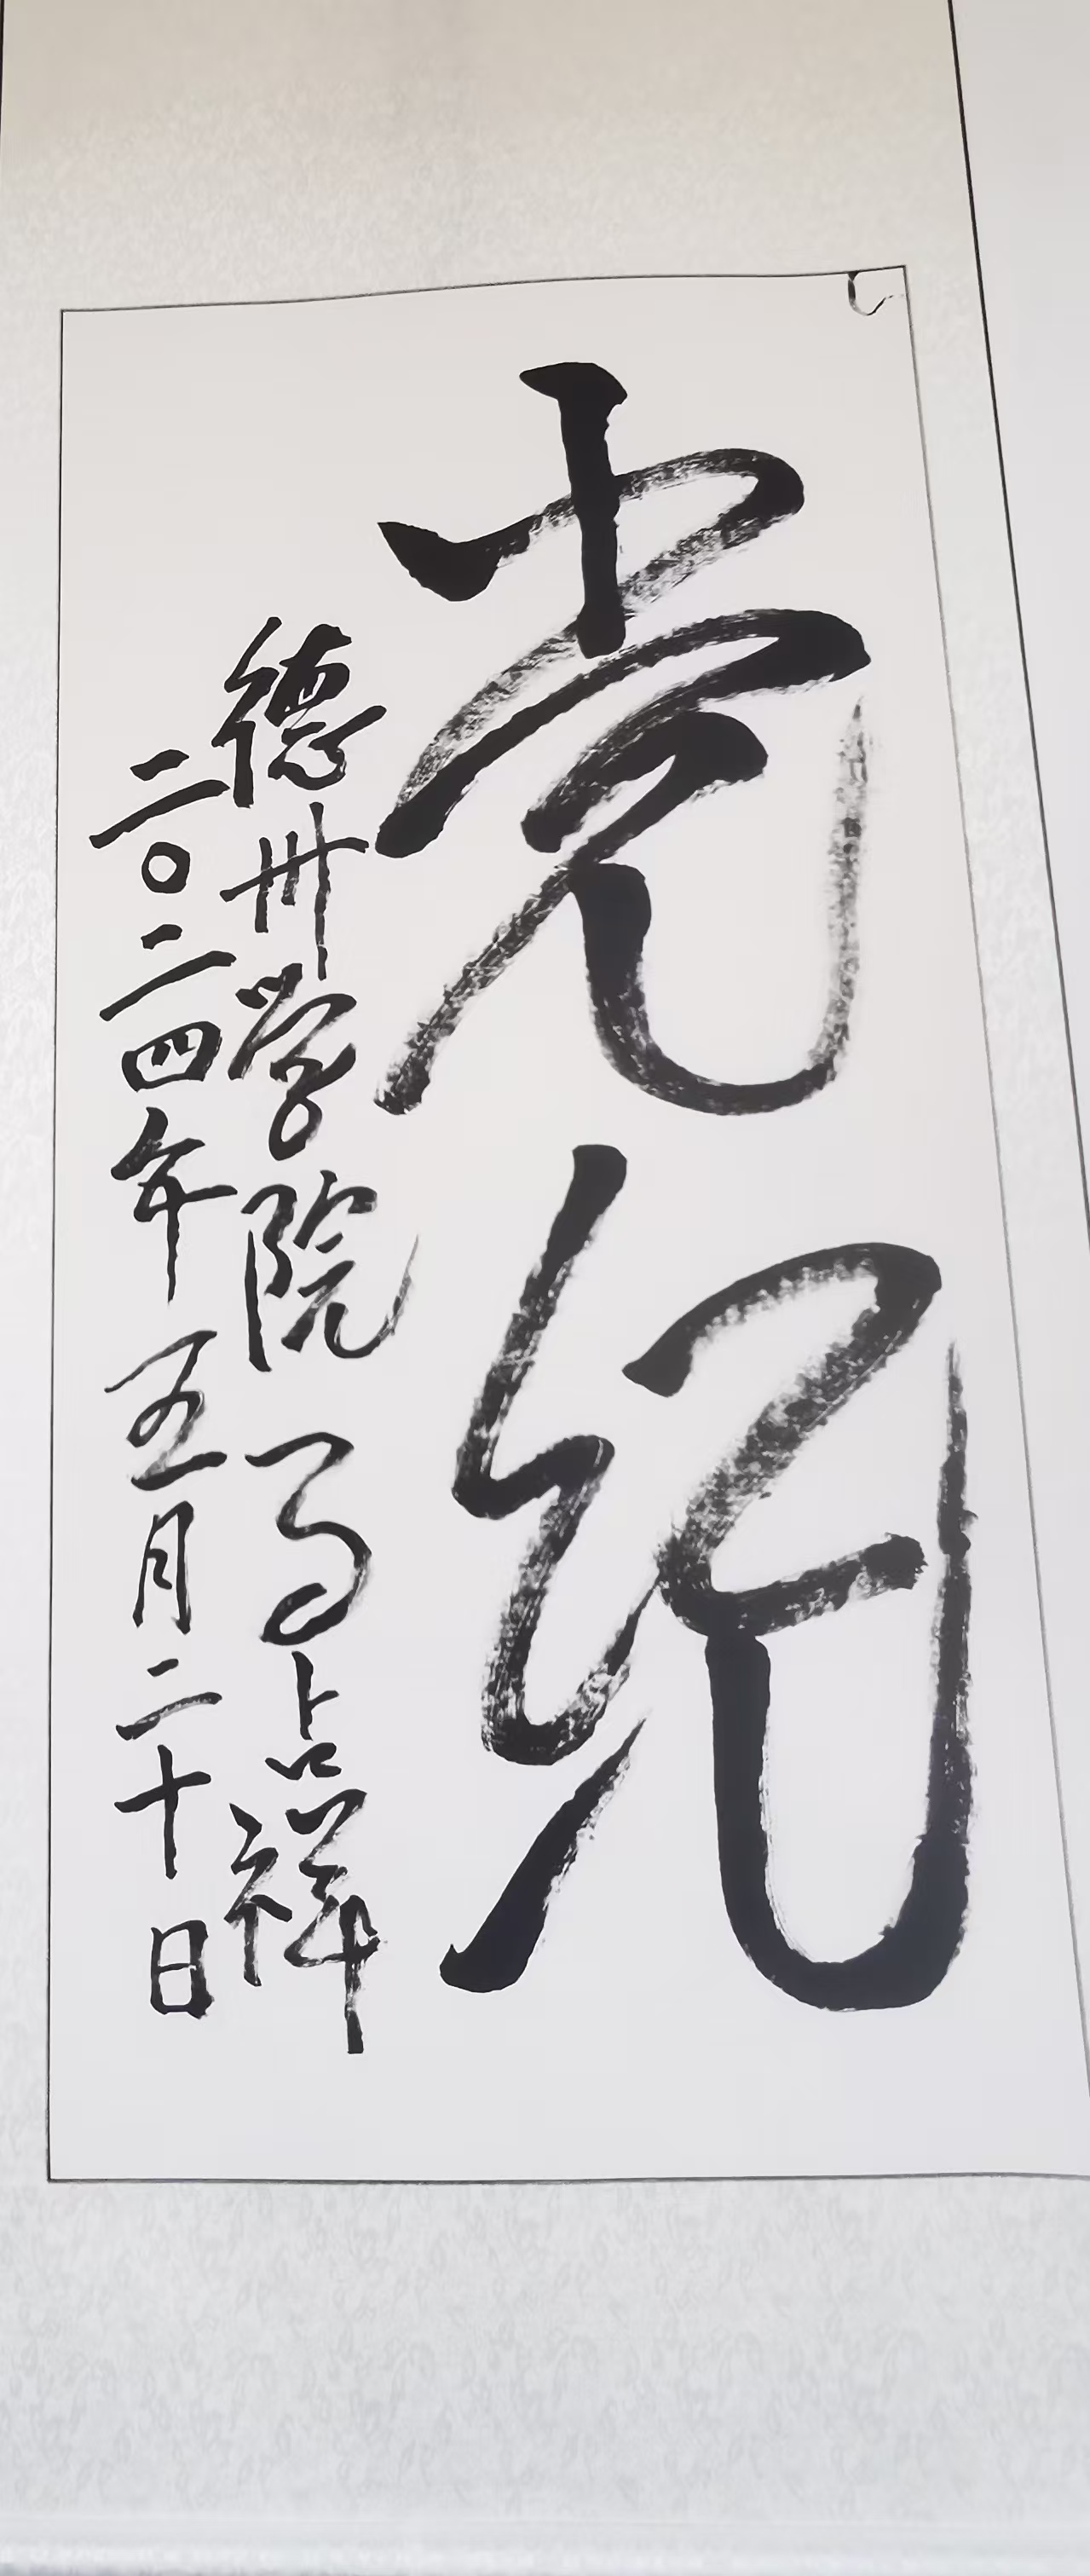 党纪
德州学院 马占祥
二〇二四年五月二十日